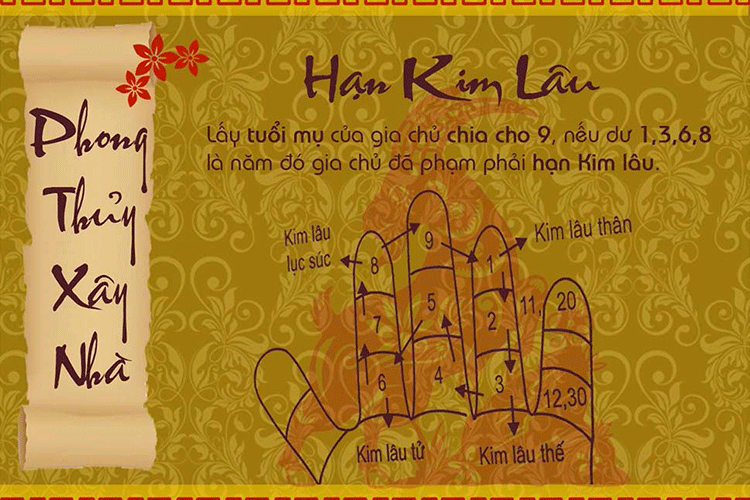 Phong
Thủy
Xây
Nhà
Hạn Kim Lâu
Lấy tuổi mụ của gia chủ chia cho 9, nếu dư 1,3,6,8
là năm đó gia chủ đã phạm phải hạn Kim lâu.
Kim lâu
lục súc
Kim lâu thân
8
9
1
7
5
2
11,
20
6
4
3
12,30
Kim lâu tử
Kim lâu thế